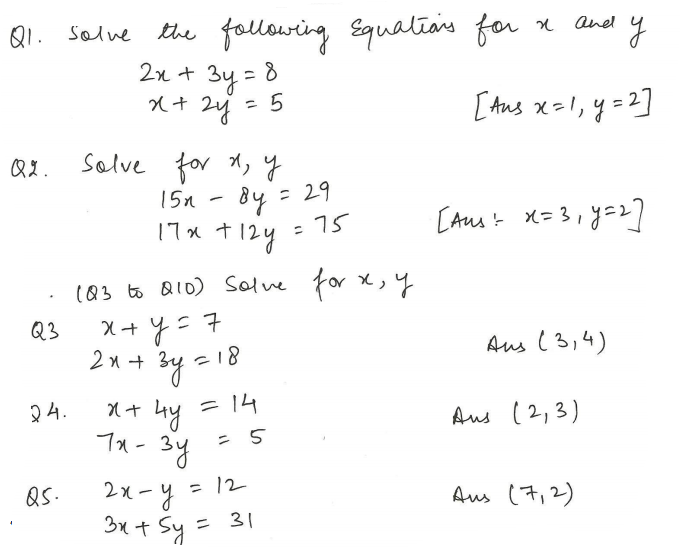 Q1. Solve the following Equations for x and y
2x + 3y = 8
x + 2y = 5 [Ans x=1, y=2]
Q2. Solve for x, y
15x - 8y = 29
17x + 12y = 75 [Ans :- x=3, y=2]
(Q3 to Q10) Solve for x, y
Q3 x + y = 7
2x + 3y = 18 Ans (3,4)
Q4. x + 4y = 14 Ans (2,3)
7x - 3y = 5
Q5. 2x - y = 12 Ans (7,2)
3x + 5y = 31